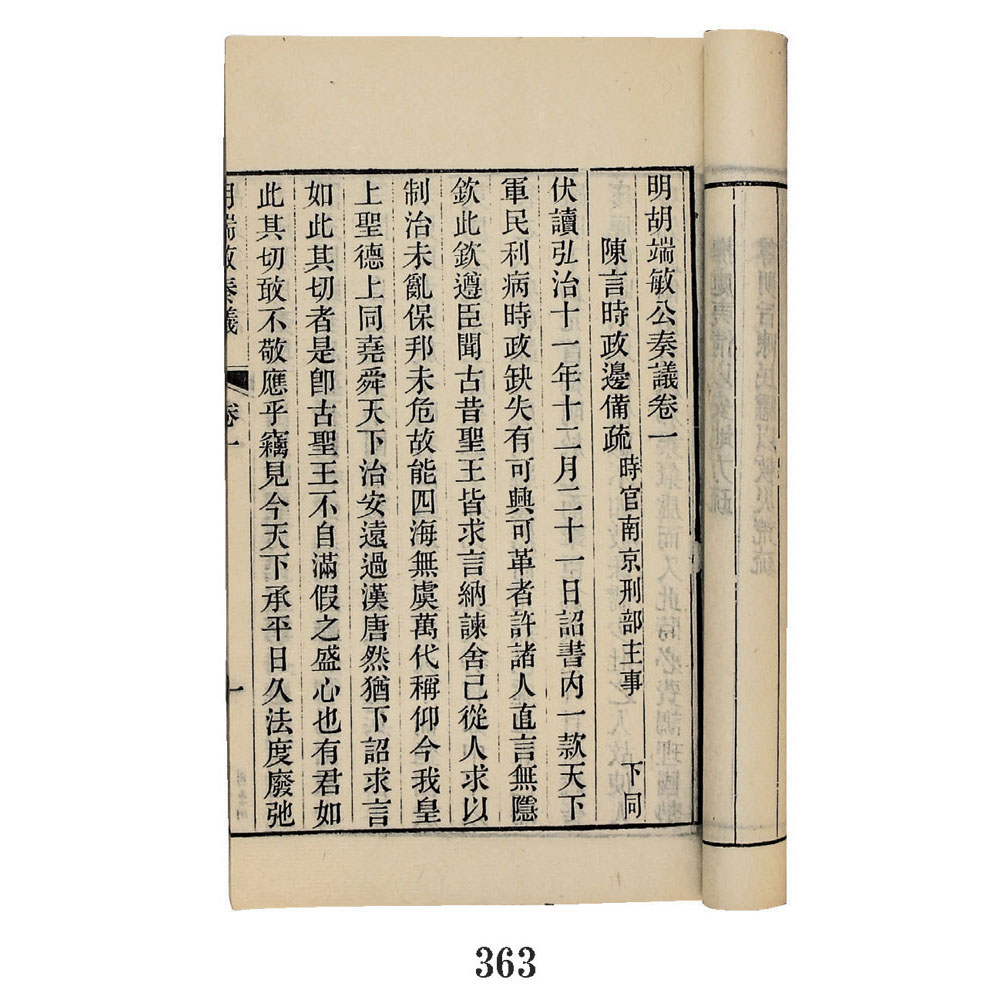 明胡端敏公奏議卷一
陳言時政邊備疏 時官南京刑部主事 下同
伏讀弘治十一年十二月二十一日詔書內一款天下
軍民利病時政缺失有可興可革者許諸人直言無隱
欽此欽遵臣聞古昔聖王皆求言納諫舍己從人求以
制治未亂保邦未危故能四海無虞萬代稱仰今我皇
上聖德上同堯舜天下治安遠過漢唐然猶下詔求言
如此其切者是卽古聖王不自滿假之盛心也有君如
此其切敢不敬應乎竊見今天下承平日久法度廢弛
胡端敏奏議 卷一 一
363